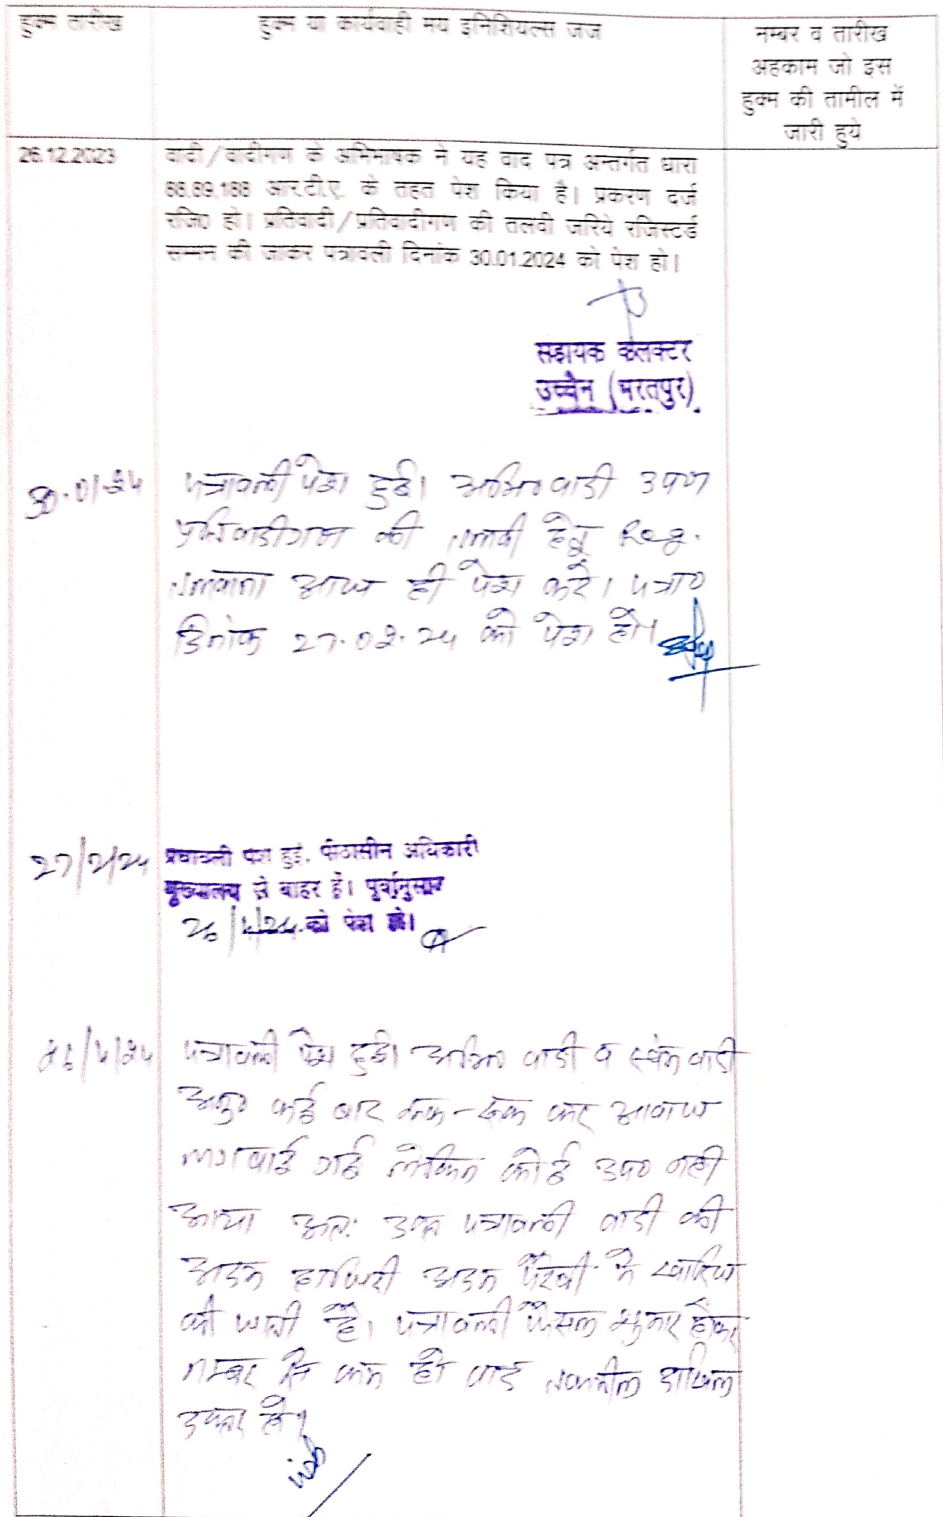 हुक्म तारीख
हुक्म या कार्यवाही मय इनिशियल्स जज
नम्बर व तारीख
अहकाम जो इस
हुक्म की तामील में
जारी हुये
26.12.2023
वादी/वादीगण के अभिभाषक ने यह वाद पत्र अन्तर्गत धारा
88,89,188 आर.टी.ए. के तहत पेश किया है। प्रकरण दर्ज
रजि0 हो। प्रतिवादी/प्रतिवादीगण की तलवी जरिये रजिस्टर्ड
सम्मन की जाकर पत्रावली दिनांक 30.01.2024 को पेश हो।
सहायक कलक्टर
उच्चैन (भरतपुर)
30.01.24
पत्रावली पेश हुई। अभि० वादी उप०
प्रतिवादीगण की तलवी हेतु Reg.
तलवाना आज ही पेश करे। पत्रा०
दिनांक 27.02.24 को पेश हो।
27/2/24
पत्रावली पेश हुई. पीठासीन अधिकारी
मुख्यालय से बाहर हैं। पूर्वानुसार
26/4/24 को पेश हो।
26/4/24
पत्रावली पेश हुई। अभि० वादी व स्वंय वादी
अनु० कई बार रुक-रुक कर आवाज
लगवाई गई लेकिन कोई उप० नही
आया अतः उक्त पत्रावली वादी की
अदम हाजिरी अदम पैरवी मे खारिज
की जाती है। पत्रावली फैसल शुमार होकर
नम्बर से कम हो वाद तकमील दाखिल
दफ्तर हो।